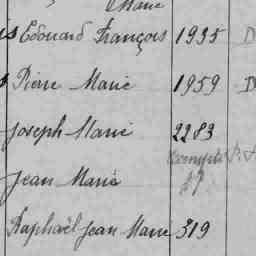 Marie
Edouard François 1935
Pierre Marie 1959
Joseph Marie 2283
Jean Marie
Raphaël Jean Marie 319